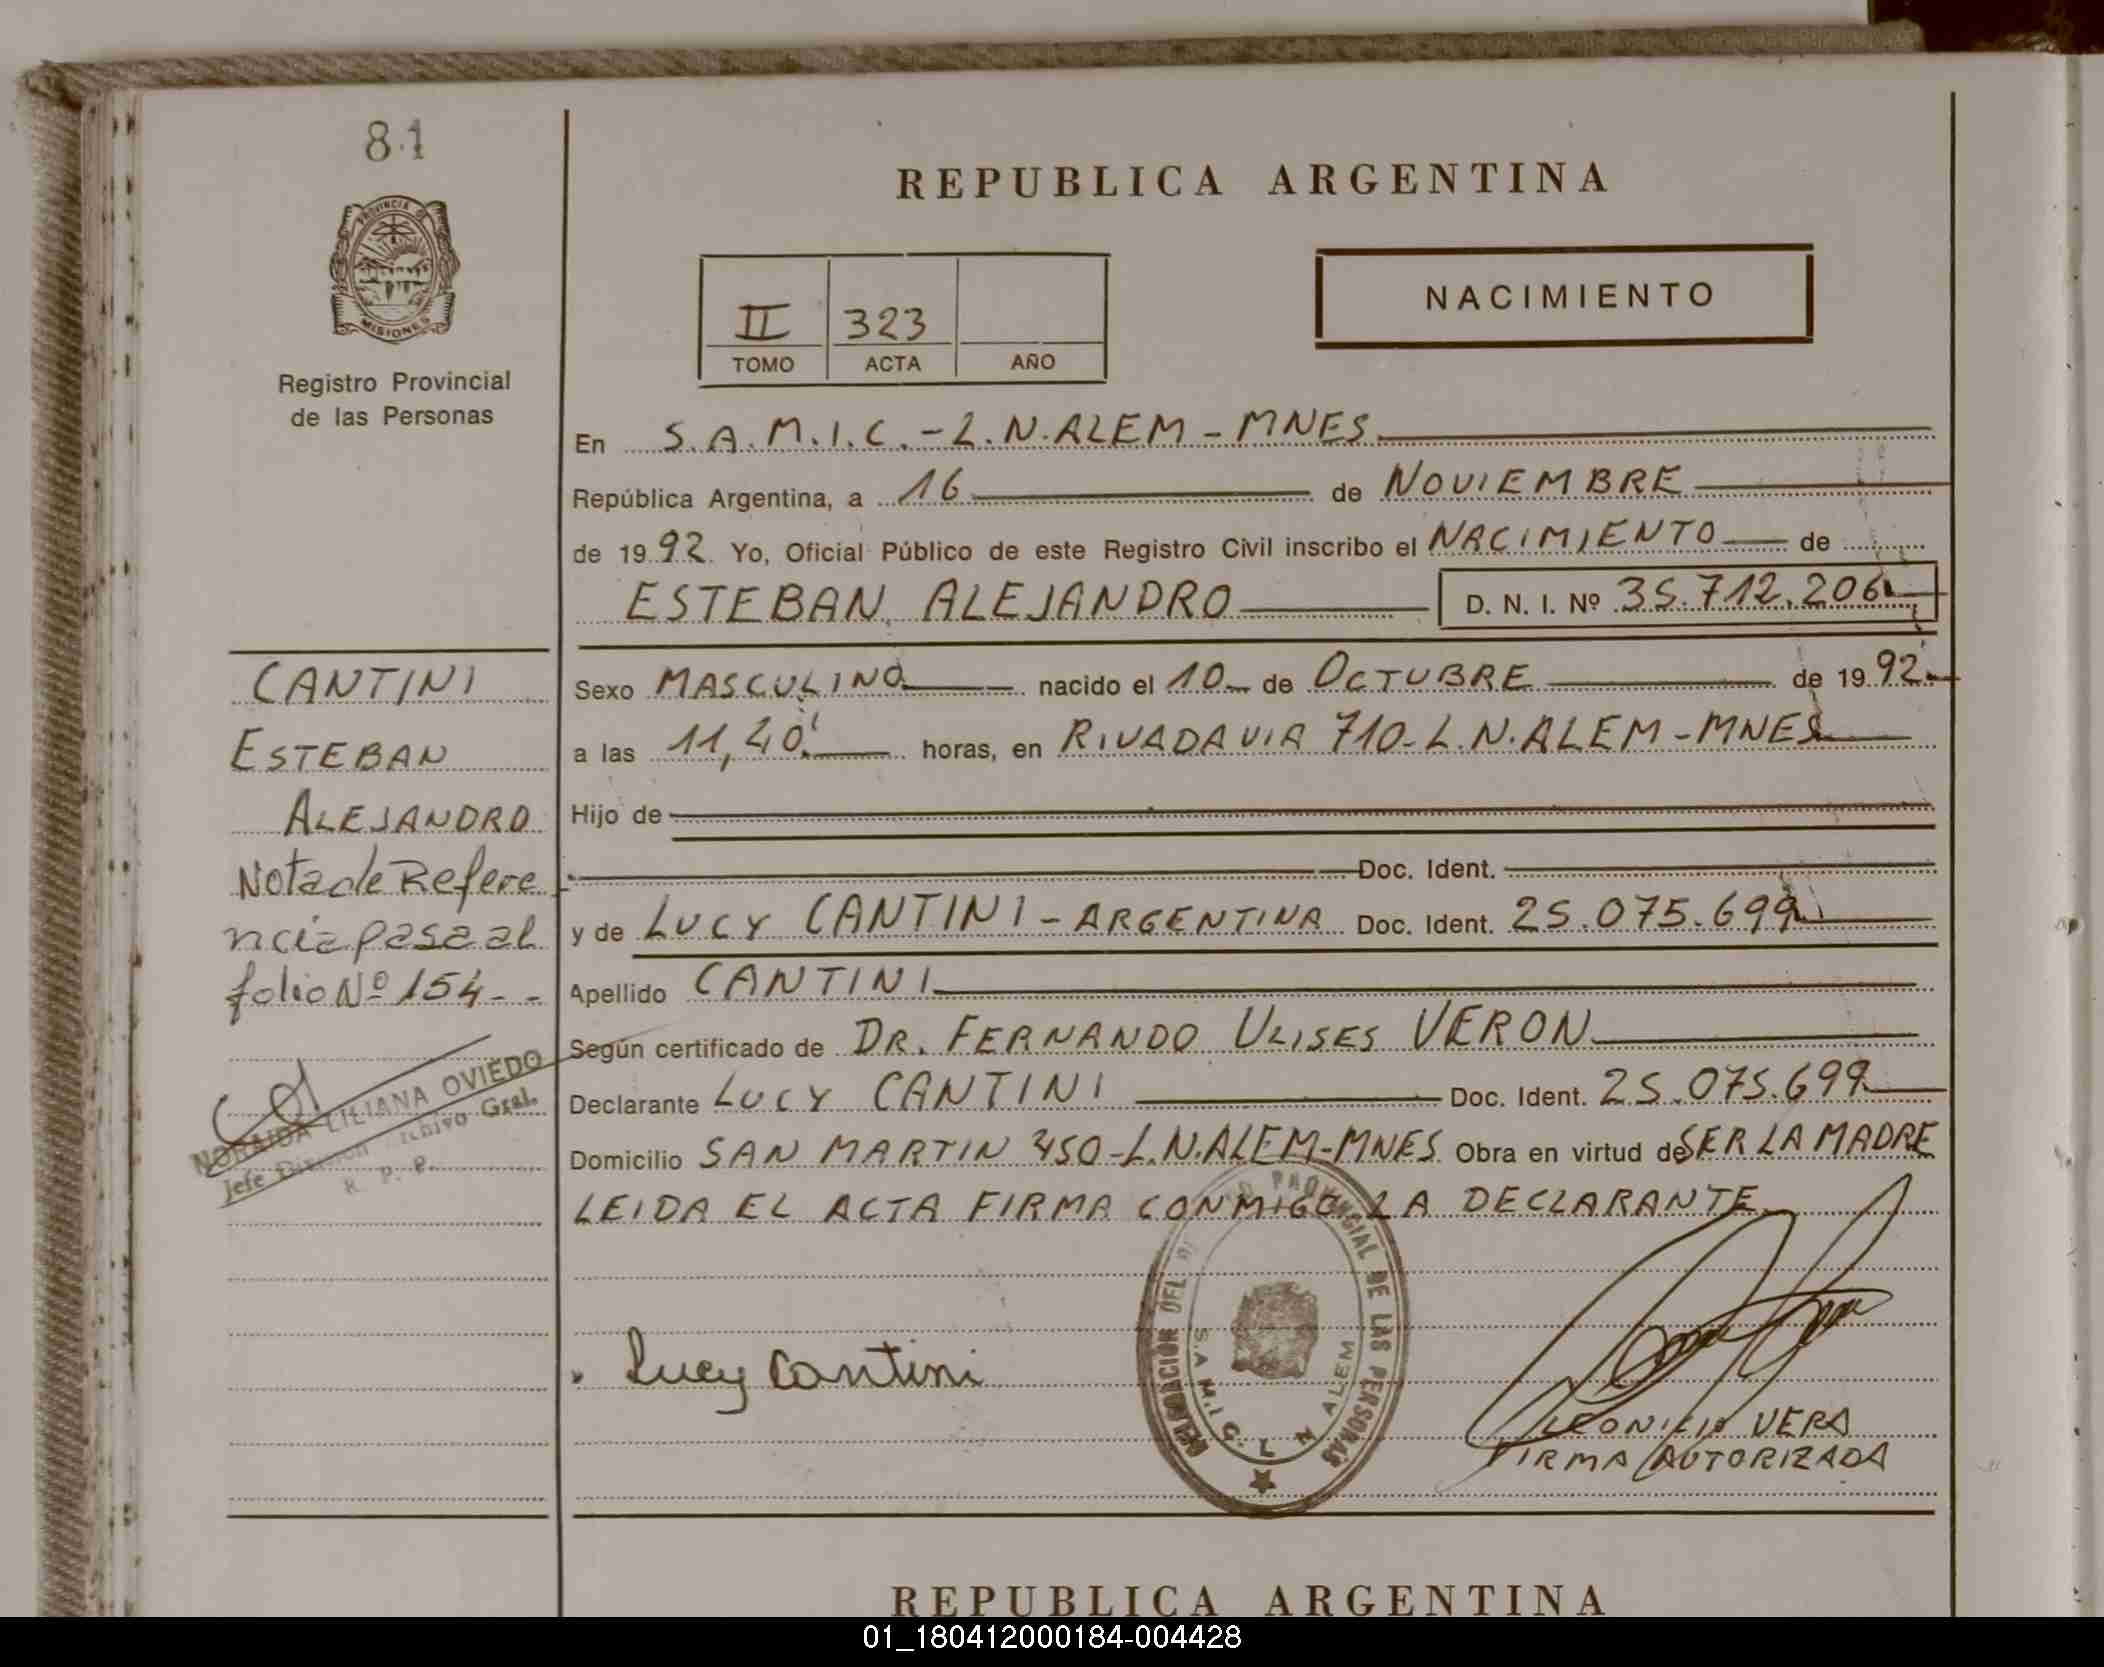 81
PROVINCIA DE
MISIONES
Registro Provincial
de las Personas
REPUBLICA ARGENTINA
II 323
TOMO ACTA AÑO
NACIMIENTO
En S.A.M.I.C.-L.N.ALEM-MNES
República Argentina, a 16 de NOVIEMBRE
de 1992 Yo, Oficial Público de este Registro Civil inscribo el NACIMIENTO de
ESTEBAN ALEJANDRO D. N. I. Nº 35.712.206
Sexo MASCULINO nacido el 10 de OCTUBRE de 1992
a las 11,40' horas, en RIVADAVIA 710-L.N.ALEM-MNES
Hijo de
Doc. Ident.
y de LUCY CANTINI-ARGENTINA Doc. Ident. 25.075.699
Apellido CANTINI
Según certificado de DR. FERNANDO ULISES VERON
Declarante LUCY CANTINI Doc. Ident. 25.075.699
Domicilio SAN MARTIN 450-L.N.ALEM-MNES Obra en virtud de SER LA MADRE
LEIDA EL ACTA FIRMA CONMIGO LA DECLARANTE
CANTINI
ESTEBAN
ALEJANDRO
Nota de Refere
ncia pasa al
folio Nº 154--
LILIANA OVIEDO
Jefe División Archivo Gral.
R. P. P.
Lucy Cantini
PROVINCIAL DE LAS PERSONAS
S.A.M.I.C. L. N. ALEM
VERA
FIRMA AUTORIZADA
REPUBLICA ARGENTINA
01_180412000184-004428